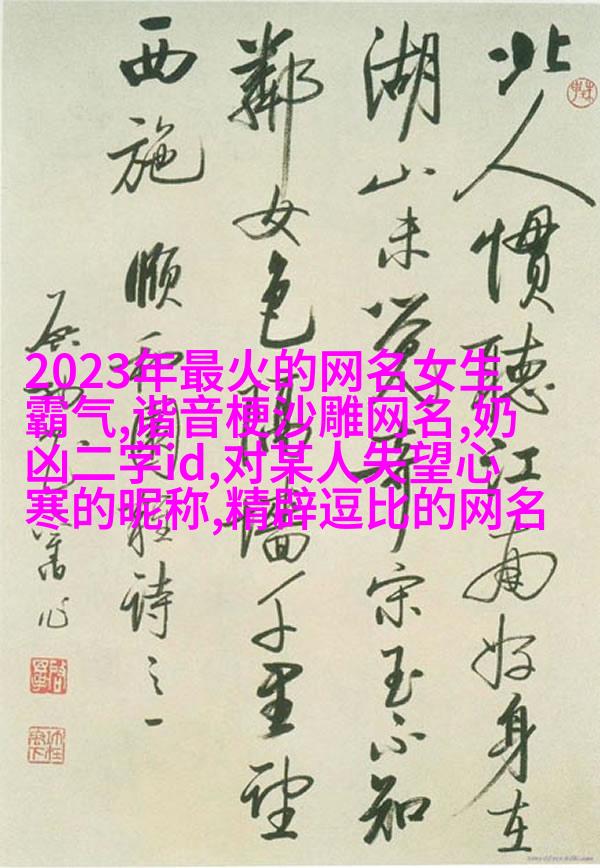 2023年最火的网名女生
霸气,谐音梗沙雕网名,奶
凶二字id,对某人失望心
寒的昵称,精辟逗比的网名
北人慣聽江南好身在
湖山未覺奇宋玉不知
鄰女色隔墻千里望
西施 頤和園雜詩之一
启功舊作